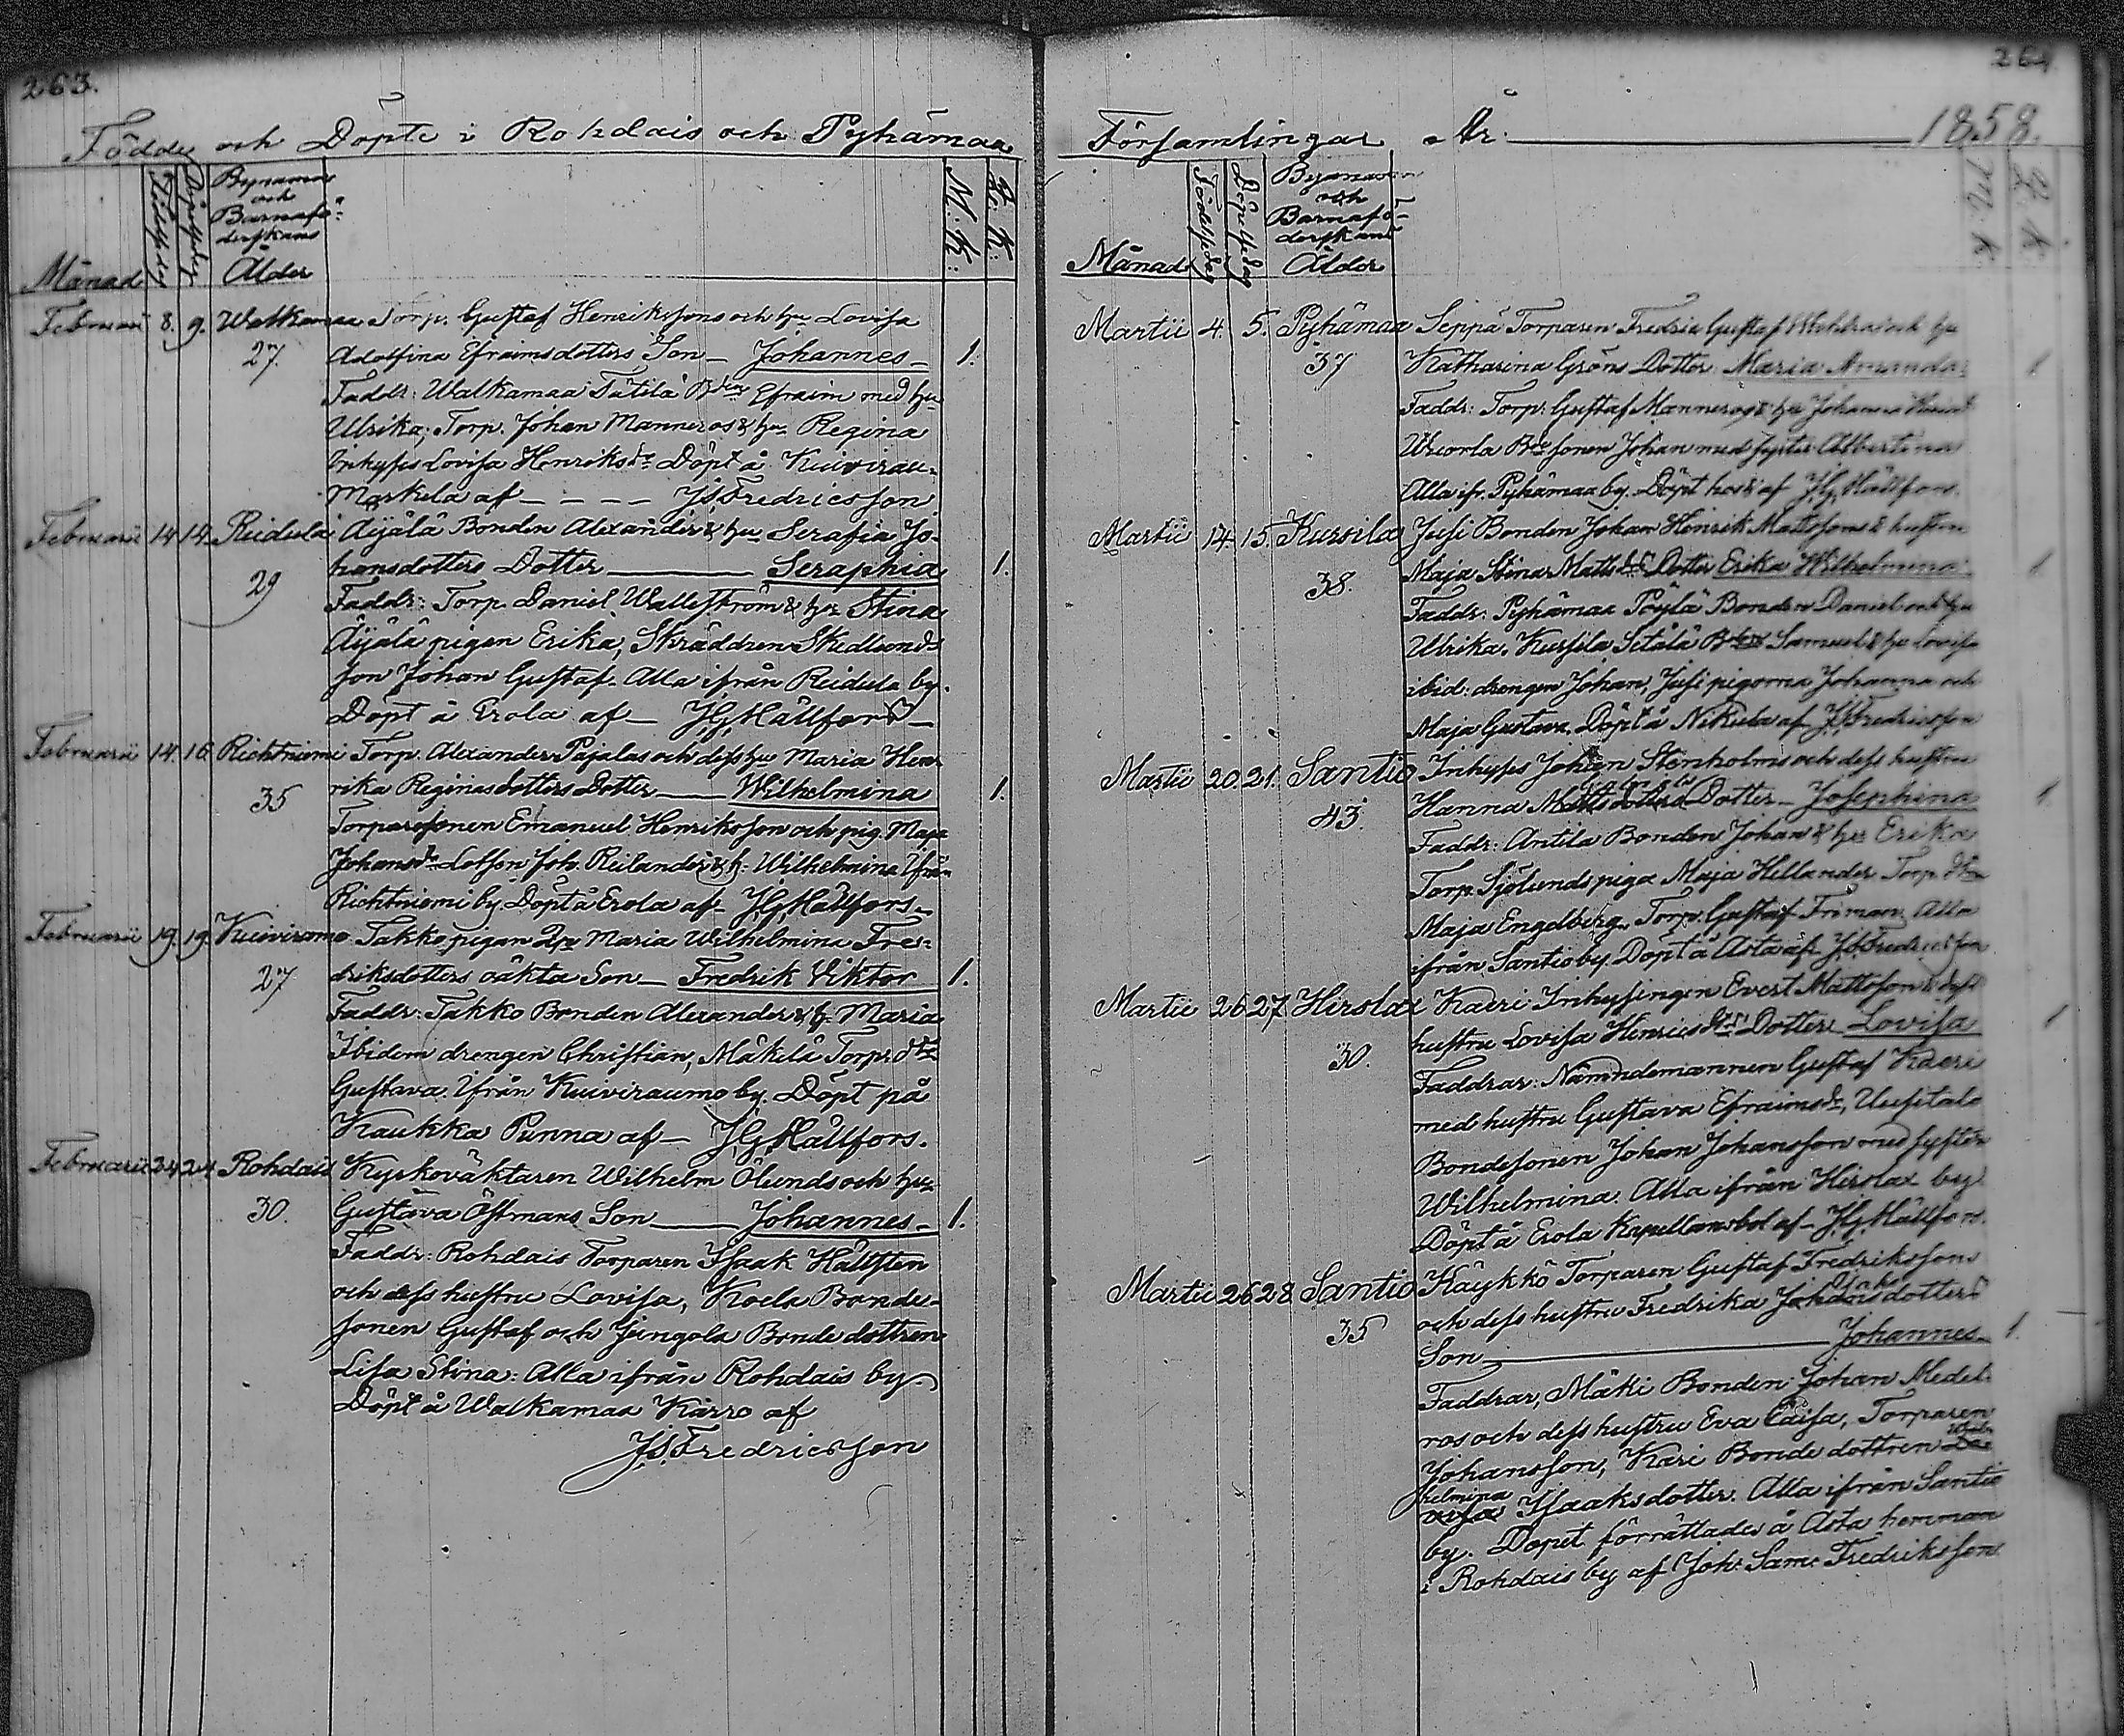 263.
Födde och Döpte i Rohdais och Pyhämaa
Månad
Födelsedag
Döpelsedag
Bynamn
och
Barnafö-
derskans
Ålder
M. K.
Q. K.
Februarii 8. 9. Walkamaa Torp. Gustaf Henrikssons och hu Lovisa
27. Adolfina Efraimsdotters Son — Johannes — 1.
Faddr: Walkamaa Tätilä Bden Efraim med hu
Ulrika; Torp. Johan Manneros & hu Regina
Inhyses Lovisa Henriksdr Döpt å Kuivirau-
Markela af — — — — J.S. Fredricsson
Februarii 14 14. Reidula Äyälä Bonden Alexander & hu Serafia Jo-
29 hansdotters Dotter — Seraphia 1.
Faddr: Torp. Daniel Wallström & hu Stina
Äyälä pigan Erika, Skräddren Skedlunds
son Johan Gustaf. Alla ifrån Reidula by.
Döpt å Erola af — J.G. Hällfors —
Februarii 14. 16. Richtniemi Torp. Alexander Pajalas och dess hu Maria Hen-
35 rika Reginasdotters Dotter — Wilhelmina 1.
Torparesonen Emanuel Henriksson och pig. Maja
Johansdr Lotsen Joh. Reilander & h. Wilhelmina ifrån
Richtniemi by. Döpt å Erola af J.G. Hällfors —
Februarii 19. 19. Kuiviraumo Takko pigan Maria Wilhelmina Fre-
27 driksdotters oäkta Son — Fredrik Viktor 1.
Faddr: Takko Bonden Alexander & h. Maria
Ibidem drengen Christian, Mäkelä Torpr dtr
Gustava. Ifrån Kuiviraumo by. Döpt på
Kaukka Punna af — J.G. Hällfors.
Februarii 24 24 Rohdais Kyrkoväktaren Wilhelm Ölunds och hus
30. Gustava Östmans Son — Johannes — 1.
Faddr: Rohdais Torparen Isaak Hällsten
och dess hustru Lovisa, Koela Bonde-
sonen Gustaf och Jungola Bonde dottren
Lisa Stina: Alla ifrån Rohdais by.
Döpt å Walkamaa Kärro af
J.S. Fredricsson
264
Församlingar År. 1858.
Månad
Födelsedag
Döpelsedag
Bynamn
och
Barnafö-
derskans
Ålder
M. K.
Q. K.
Martii 4. 5. Pyhämaa Seppä Torparen Fredric Gustaf och hu
37 Katharina Gröns Dotter Maria Amanda. 1
Faddr: Torp. Gustaf Manneros & hu Johanna
Wuorla Bde sonen Johan med syster Albertina
Alla ifr. Pyhämaa by. Döpt hos & af J.G. Hällfors.
Martii 14. 15. Kursila Jusi Bonden Johan Henrik Mattssons & hustru
38. Maja Stina Matts dr Dotter Erika Wilhelmina 1
Faddr: Pyhämaa Pöylä Bonden Daniel och hu
Ulrika, Kursila Setälä Bden Samuel & hu Lovisa
ibid: drengen Johan, Jusi pigorna Johanna och
Maja Gustava. Döpt å Nikula af J.S. Fredricsson
Martii 20. 21. Santio Inhyses Johan Stenholms och dess hustru
43. Hanna Dotter — Josephina 1.
Faddr: Antila Bonden Johan & hu Erika
Torp. Sjölunds piga Maja Hellander Torp.
Maja Engdberg, Torp. Gustaf Friman. Alla
ifrån Santio by. Döpt å Asta af J.S. Fredricsson
Martii 26 27 Hirslax Kaeri Inhysingen Evert Mattsson & dess
30. hustru Lovisa Henricsdtrs Dotter Lovisa 1
Faddrar: Nämndemannen Gustaf Kaeri
med hustru Gustava Efraimsdr, Uusitalo
Bondesonen Johan Johansson med syster
Wilhelmina. Alla ifrån Hirslax by
Döpt å Erola Kapellansbol af J.G. Hällfors.
Martii 26 28 Santio Käykkö Torparen Gustaf Fredrikssons
35 och dess hustru Fredrika Johansdotters
Son — Johannes — 1.
Faddrar, Mäki Bonden Johan Medel-
ros och dess hustru Eva Caisa, Torparen
Johansson, Kari Bonde dottren Wil-
helmina Isaaksdotter. Alla ifrån Santio
by. Dopet förrättades å Asta hemman
i Rohdais by af Joh. Sam. Fredriksson